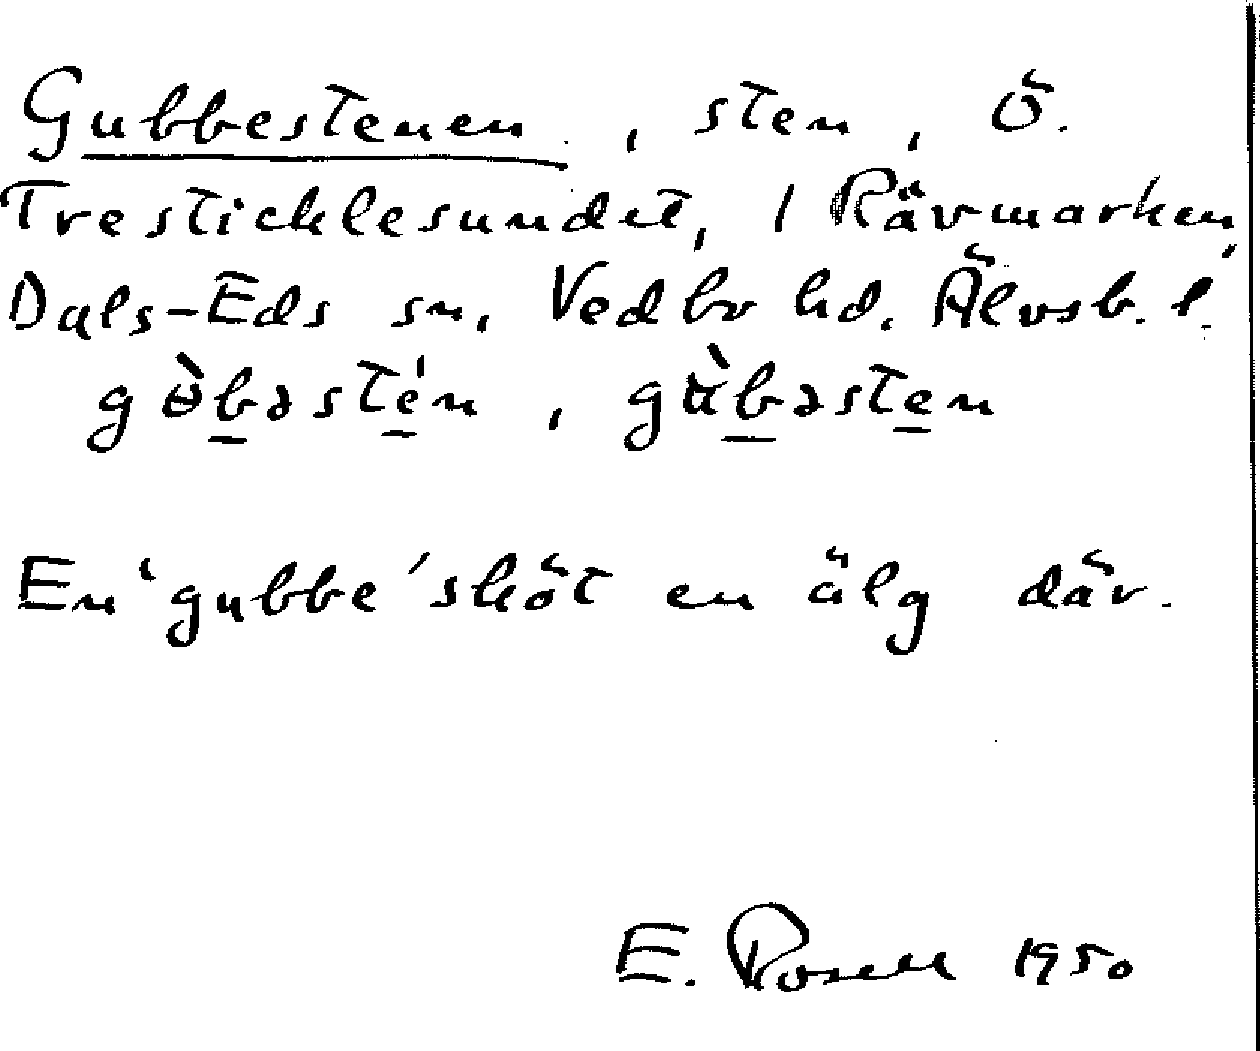 Gubbestenen, sten, Ö.
Tresticklesundet, 1 Rävmarken,
Dals-Eds sn, Vedbo hd. Älvsb. l.
En 'gubbe' sköt en älg där.
E. Rosell 1950